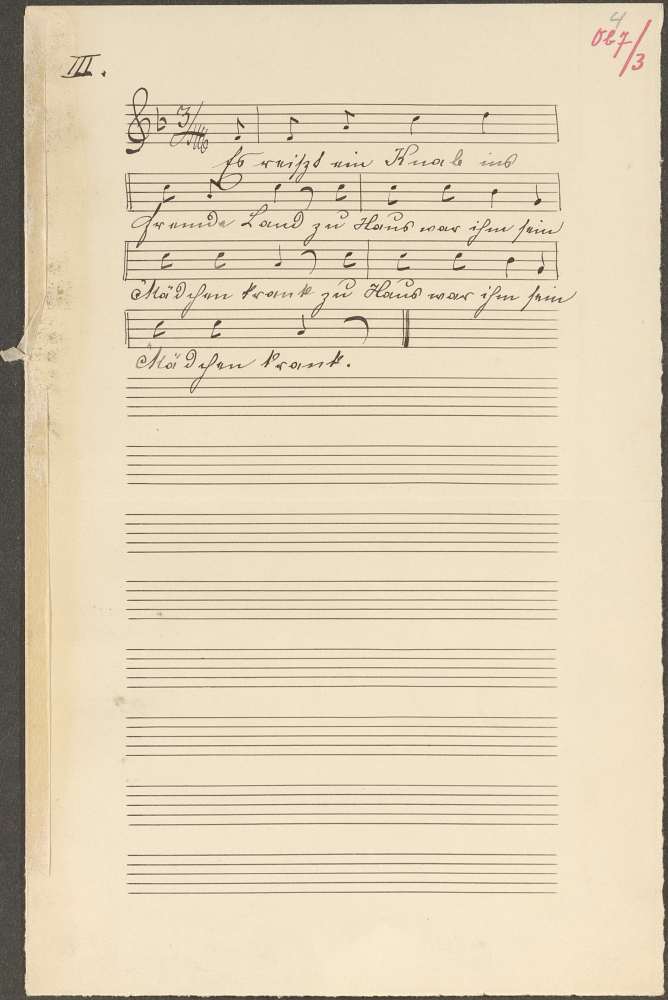 4
Ob 7/3
III.
Es reißt ein Knab ins
fremde Land zu Haus war ihm sein
Mädchen krank zu Haus war ihm sein
Mädchen krank.